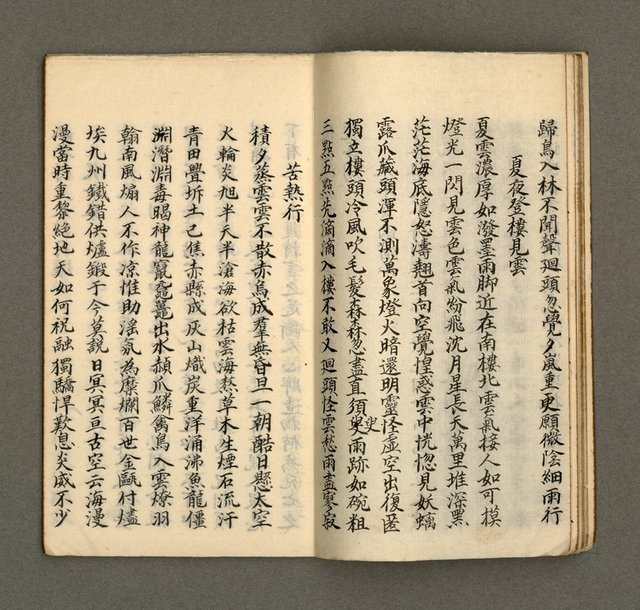 歸鳥入林不聞聲迴頭忽覺夕嵐重更願微陰細雨行
夏夜登樓見雲
夏雲濃厚如潑墨雨脚近在南樓北雲氣接人如可摸
燈光一閃見雲色雲氣紛飛沈月星長天萬里堆深黑
茫茫海底隱怒濤翹首向空覺惶惑雲中恍惚見妖螭
露爪藏頭渾不測萬象燈火暗還明靈怪虛空出復匿
獨立樓頭冷風吹毛髮森森忽盡直須臾雨跡如碗粗
三點五點先滴滴入樓不敢又迴頭怪雲愁雨盡寥寂
苦熱行
積夕蒸雲雲不散赤烏成羣無昏旦一朝酷日懸太空
火輪炎旭半天半滄海欲枯雲海熱草木生煙石流汗
青田疊坼土已焦赤縣成灰山熾炭重洋涌沸魚龍僵
淵潛淵毒暍神龍竄黿鼉出水赬爪鱗禽鳥入雲燎羽
翰南風煽人不作凉惟助淫氛為糜爛百世金甌付燼
埃九州鐵錯供爐鍛于今莫說日冥冥亘古空云海漫
漫當時重黎絕地天如何祝融獨驕悍歎息炎威不少